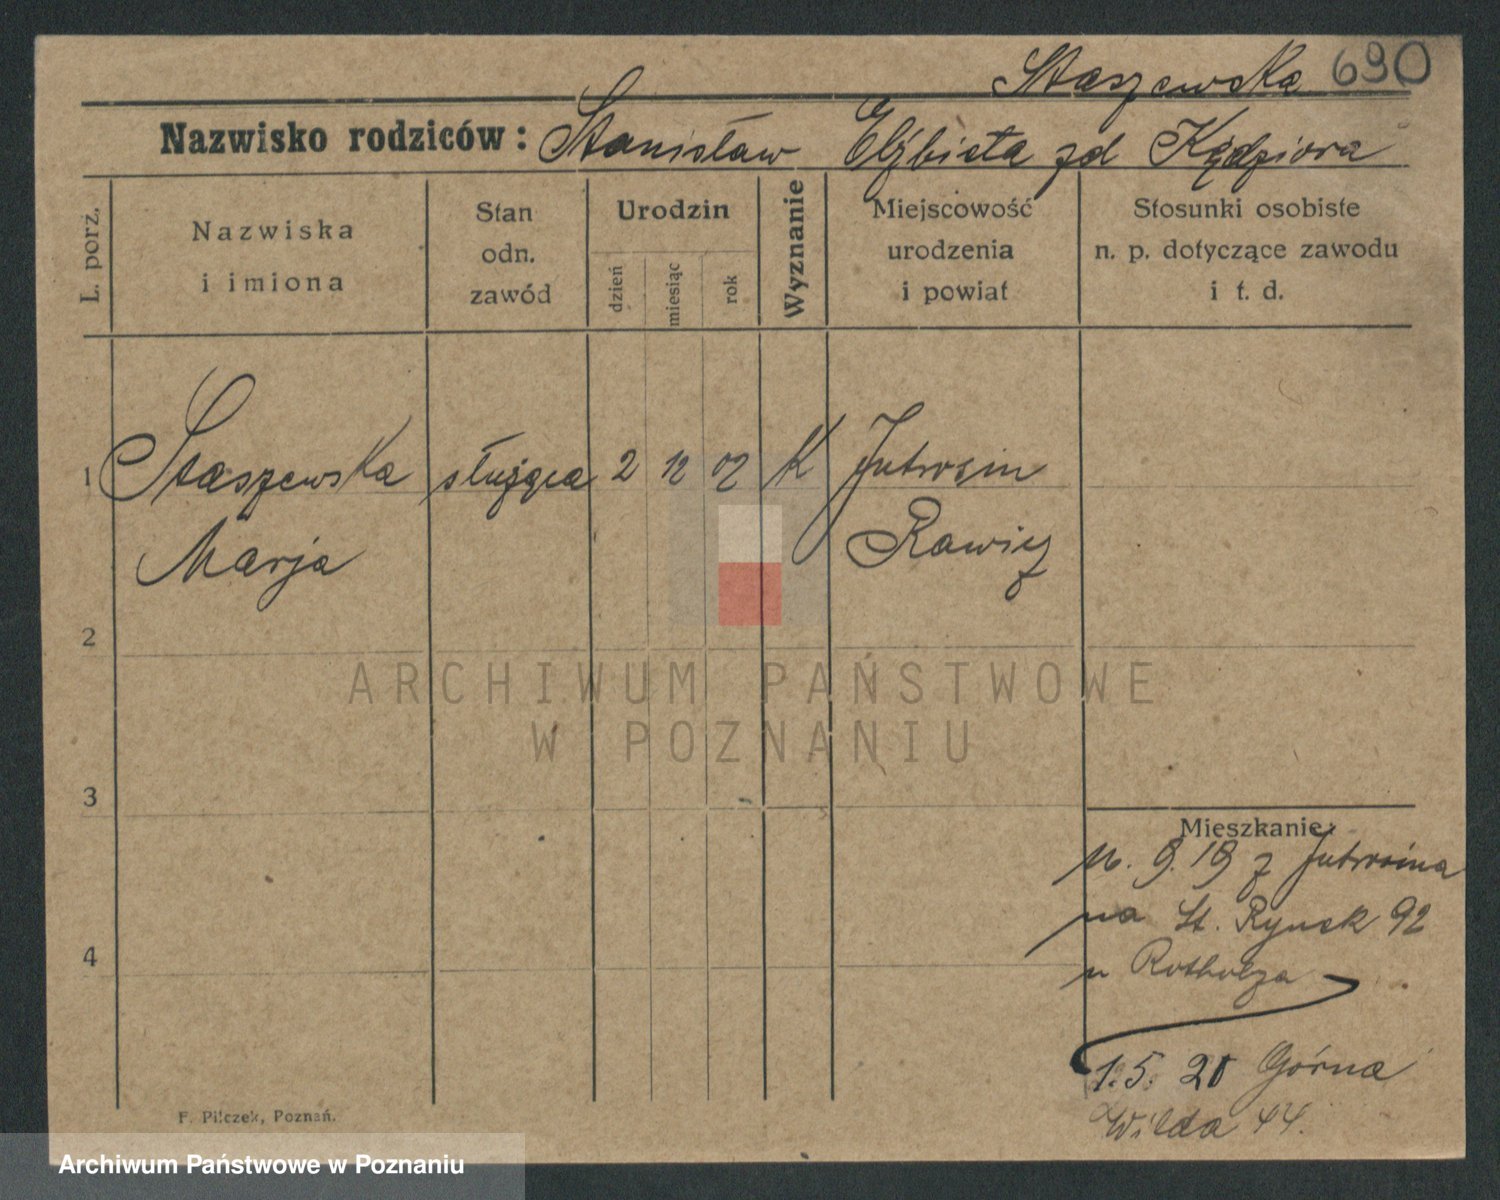 Staszewska 690
Nazwisko rodziców: Stanisław Elżbieta zd Kędziora
L. porz.
Nazwiska
i imiona
Stan
odn.
zawód
Urodzin
dzień
miesiąc
rok
Wyznanie
Miejscowość
urodzenia
i powiat
Stosunki osobiste
n. p. dotyczące zawodu
i t. d.
1 Staszewska służąca 2 12 02 K Jutrosin
Marja Rawicz
2
ARCHIWUM PAŃSTWOWE
W POZNANIU
3
Mieszkanie:
9.19 z Jutrosina
na St. Rynek 92
4
u Rotholza
1.5. 20 Górna
Wilda 44.
F. Pilczek, Poznań.
Archiwum Państwowe w Poznaniu